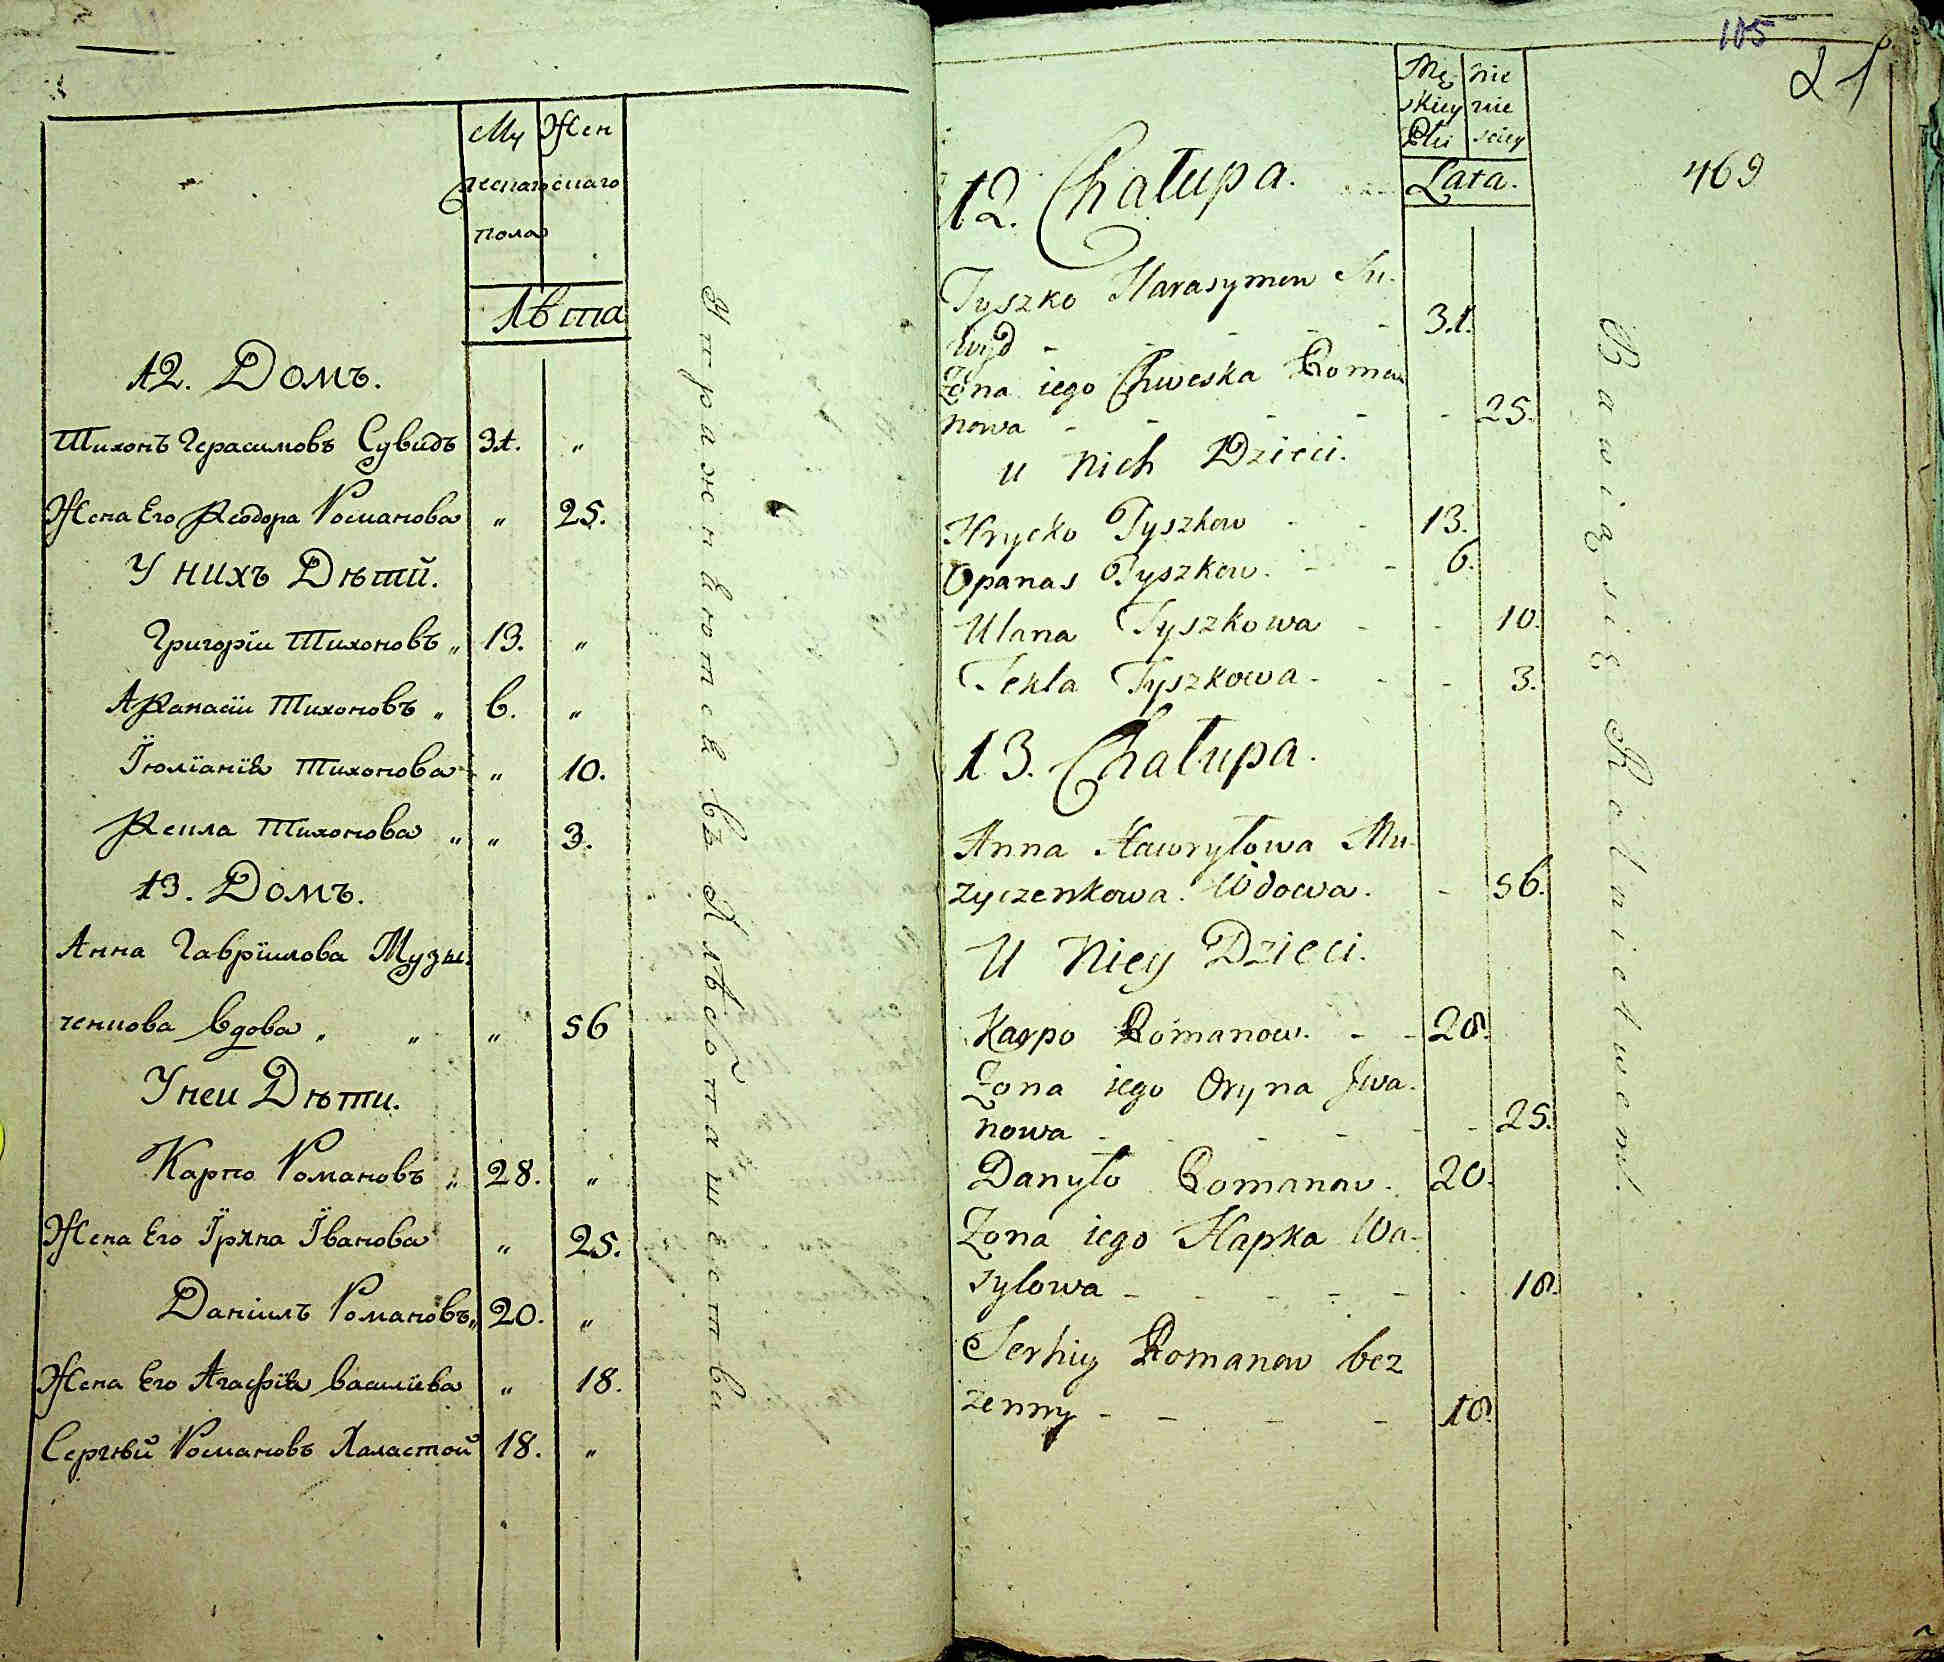 Му
Жен
ческаго
скаго
пола
Лѣта
12. Домъ.
Тихонъ Герасимовъ Сувидъ 31. „
Жена Его Ѳеодора Романова „ 25.
У нихъ Дѣтй.
Григорїи Тихоновъ „ 13. „
Аѳанасіи Тихоновъ „ 6. „
Їюлїанїя Тихонова „ 10.
Ѳекла Тихонова „ „ 3.
13. Домъ.
Анна Гаврїилова Музы
ченкова Вдова „ „ „ 56
У неи Дѣти.
Карпо Романовъ „ 28. „
Жена Его Їрина Їванова „ 25.
Данїилъ Романовъ „ 20. „
Жена Его Агафїя Василїева „ 18.
Сергѣй Романовъ Халастой 18. „
Упражнѣются въ Хлѣбопашествѣ
105
21
469
Mę nie
skiey wie
Płci sciey
Lata.
12. Chałupa.
Tyszko Harasymow Su-
wyd - - - - 31.
Żona iego Chweska Roma
nowa - - - - - 25.
u nich Dzieci.
Hrycko Tyszkow - - 13.
Opanas Tyszkow. - - 6.
Ulana Tyszkowa - - 10.
Tekla Tyszkowa - - - 3.
13. Chałupa.
Anna Hawryłowa Mu-
zyczenkowa. Wdowa. - 56.
U Niey Dzieci.
Karpo Romanow. - - 28.
Żona iego Oryna Jwa-
nowa - - - - - - 25.
Danyło Romanow. 20.
Żona iego Hapka Wa-
sylowa - - - - - - 18.
Serhiy Romanow bez
zenny - - - - 18.
Bawią się Rolnictwem.